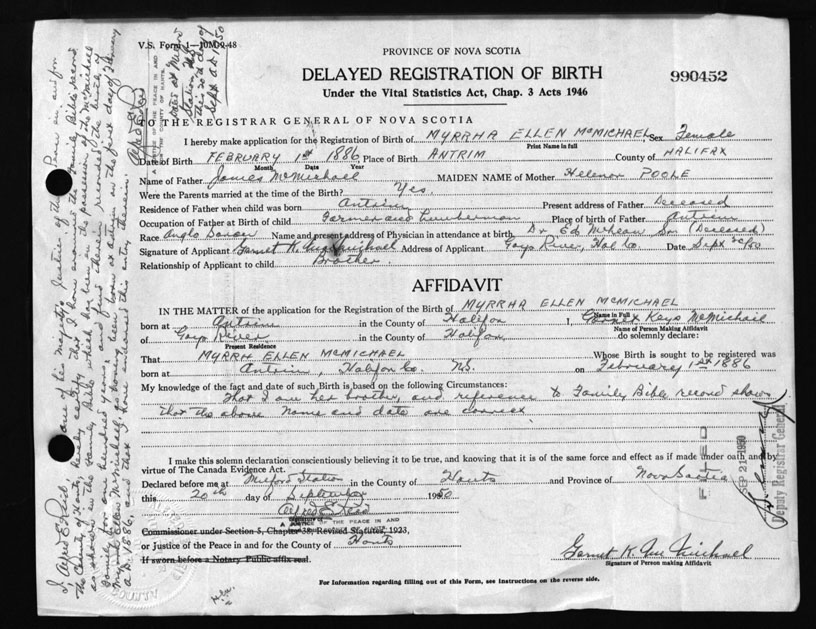 V.S. Form 1—10M-9-48
PROVINCE OF NOVA SCOTIA
DELAYED REGISTRATION OF BIRTH
990452
Under the Vital Statistics Act, Chap. 3 Acts 1946
TO THE REGISTRAR GENERAL OF NOVA SCOTIA
I hereby make application for the Registration of Birth of MYRRHA ELLEN McMICHAEL Sex Female
Print Name in full
Date of Birth FEBRUARY 1st 1886 Place of Birth ANTRIM County of HALIFAX
Month Date Year
Name of Father James McMichael MAIDEN NAME of Mother Helenor POOLE
Were the Parents married at the time of the Birth? Yes.
Residence of Father when child was born Antrim Present address of Father Deceased
Occupation of Father at Birth of child Farmer and Lumberman Place of birth of Father Antrim
Race Anglo Name and present address of Physician in attendance at birth Dr. Ed McLean Sr (Deceased)
Signature of Applicant Garnet K. McMichael Address of Applicant Gays River, Hal Co. Date Sept 20/50
Relationship of Applicant to child Brother
AFFIDAVIT
IN THE MATTER of the application for the Registration of the Birth of MYRRHA ELLEN McMICHAEL
Name in Full
born at Antrim in the County of Halifax I, Garnet Keys McMichael
Name of Person Making Affidavit
of Gays River in the County of Halifax do solemnly declare:
Present Residence
That MYRRH ELLEN McMICHAEL Whose Birth is sought to be registered was
born at Antrim, Halifax Co. N.S. on February 1st 1886
My knowledge of the fact and date of such Birth is based on the following Circumstances:
That I am her brother, and reference to Family Bible record shows
that the above name and date are correct
I make this solemn declaration conscientiously believing it to be true, and knowing that it is of the same force and effect as if made under oath and by
virtue of The Canada Evidence Act.
Declared before me at Milford Station in the County of Hants and Province of Nova Scotia
this 20th day of September 1950
Alfred E. Reid
Signature of
A JUSTICE OF THE PEACE IN AND
Commissioner under Section 5, Chapter 38, Revised Statutes, 1923,
or Justice of the Peace in and for the County of Hants
If sworn before a Notary Public affix seal.
Garnet K. McMichael
Signature of Person making Affidavit
For Information regarding filling out of this Form, see Instructions on the reverse side.
FILED
SEP 21 1950
Deputy Registrar General
I, Alfred E. Reid, one of his majesty's Justice of the Peace in and for
the County of Hants, hereby certify that I have examined the Family Bible record
as shown in the Family Bible which has been in the possession of the McMichael
family for one hundred years, and find therein recorded the birth of
Myrrh Ellen McMichael as having been born at Antrim on the first day of February
A.D. 1886, and that I have examined this entry therein.
Alfred E. Reid
A JUSTICE OF THE PEACE IN AND
FOR THE COUNTY OF HANTS.
Dated at Milford
Station, this
20th day of
Sept A.D. 1950